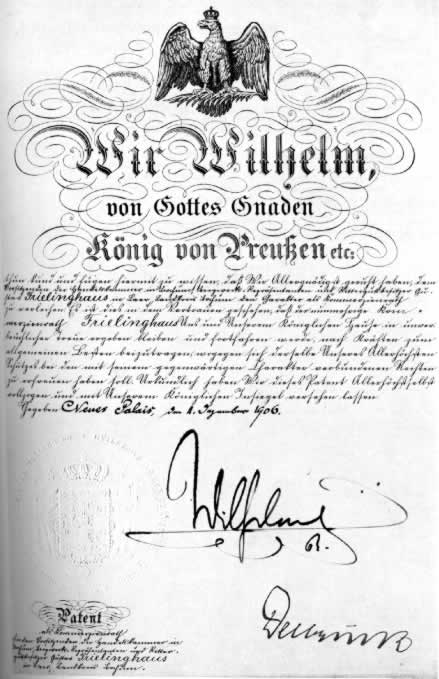 Wir Wilhelm,
von Gottes Gnaden
König von Preußen etc:
thun kund und fügen hiermit zu wissen, daß Wir Allergnädigst geruht haben, dem
Vorsitzenden der Handelskammer in Bochum, Bergwerks-Repräsentanten und Rittergutsbesitzer Gu-
stav Frielinghaus in Laer, Landkreis Bochum den Charakter als Kommerzienrath
zu verleihen. Es ist dies in dem Vertrauen geschehen, daß der nunmehrige Kom-
merzienrath Frielinghaus Uns und Unserem Königlichen Hause in unver-
brüchlicher Treue ergeben bleiben und fortfahren werde, nach Kräften zum
allgemeinen Besten beizutragen, wogegen sich derselbe Unseres Allerhöchsten
Schutzes bei den mit seinem gegenwärtigen Charakter verbundenen Rechten
zu erfreuen haben soll. Urkundlich haben Wir dieses Patent Allerhöchstselbst
vollzogen und mit Unserem Königlichen Insiegel versehen lassen
Gegeben Neues Palais, den 4. Dezember 1906.
Wilhelm
R.
Patent
als Kommerzienrath
für den Vorsitzenden der Handelskammer in
Bochum, Bergwerks-Repräsentanten und Ritter-
gutsbesitzer Gustav Frielinghaus
in Laer, Landkreis Bochum.